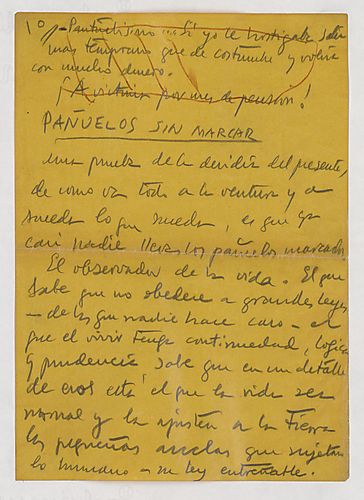 10
p- Puntualísimo... Si yo le hostigaba salía
más temprano que de costumbre y volvía
con mucho dinero.
¡A victima por mes de pension!
PAÑUELOS SIN MARCAR
Una prueba de la desidia del presente,
de como va todo a la ventura y a
suceda lo que suceda, es que ya
casi nadie lleva los pañuelos marcados.
El observador de la vida. El que
sabe que no obedece a grandes leyes
- de las que nadie hace caso - el
que el vivir tenga continuidad, lógica
y prudencia sabe que en un detalle
de esos está el que la vida sea
normal y la ajusten a la tierra
las pequeñas anclas que sujetan
lo humano a su ley entrañable.